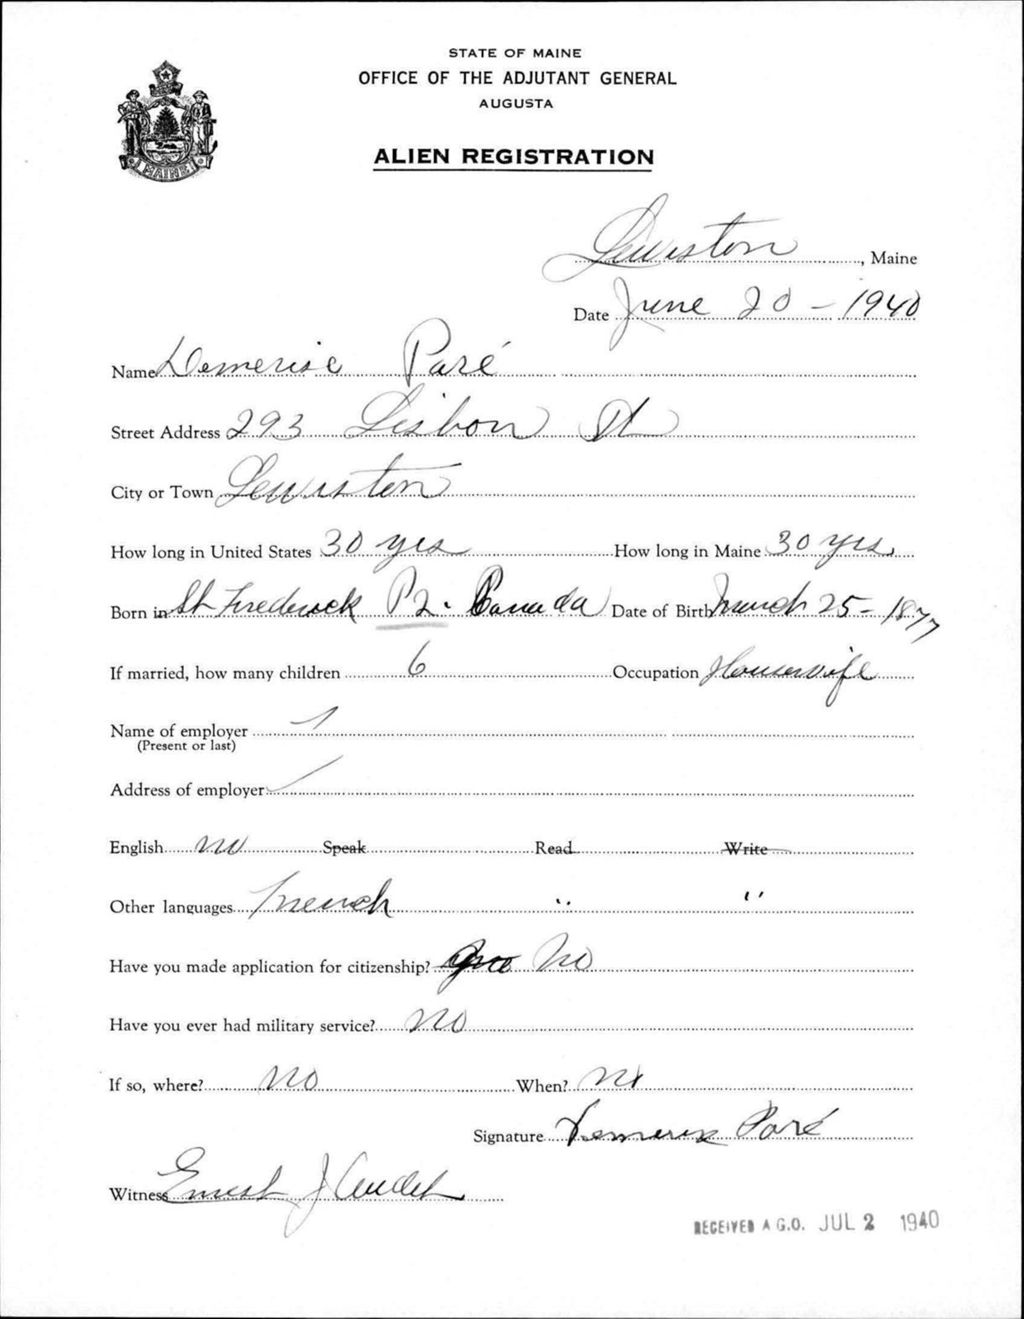 STATE OF MAINE
OFFICE OF THE ADJUTANT GENERAL
AUGUSTA
MAINE
ALIEN REGISTRATION
Lewiston, Maine
Date June 20 - 1940
Name Demerise Paré
Street Address 293 Lisbon St
City or Town Lewiston
How long in United States 30 yrs How long in Maine 30 yrs.
Born in St Frederick P2. Canada Date of Birth March 25 - 1877
If married, how many children 6 Occupation Housewife
Name of employer
(Present or last)
Address of employer
English no Speak Read Write
Other languages French " "
Have you made application for citizenship? No
Have you ever had military service? no
If so, where? no When? no
Signature Demerise Paré
Witness Ernest J Audet
RECEIVED A.G.O. JUL 2 1940